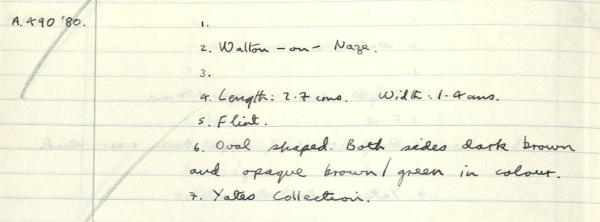 A.490 '80.
1.
2. Walton-on-Naze.
3.
4. Length: 2.7 cms. Width: 1.4 cms.
5. Flint.
6. Oval shaped. Both sides dark brown
and opaque brown/green in colour.
7. Yates Collection.